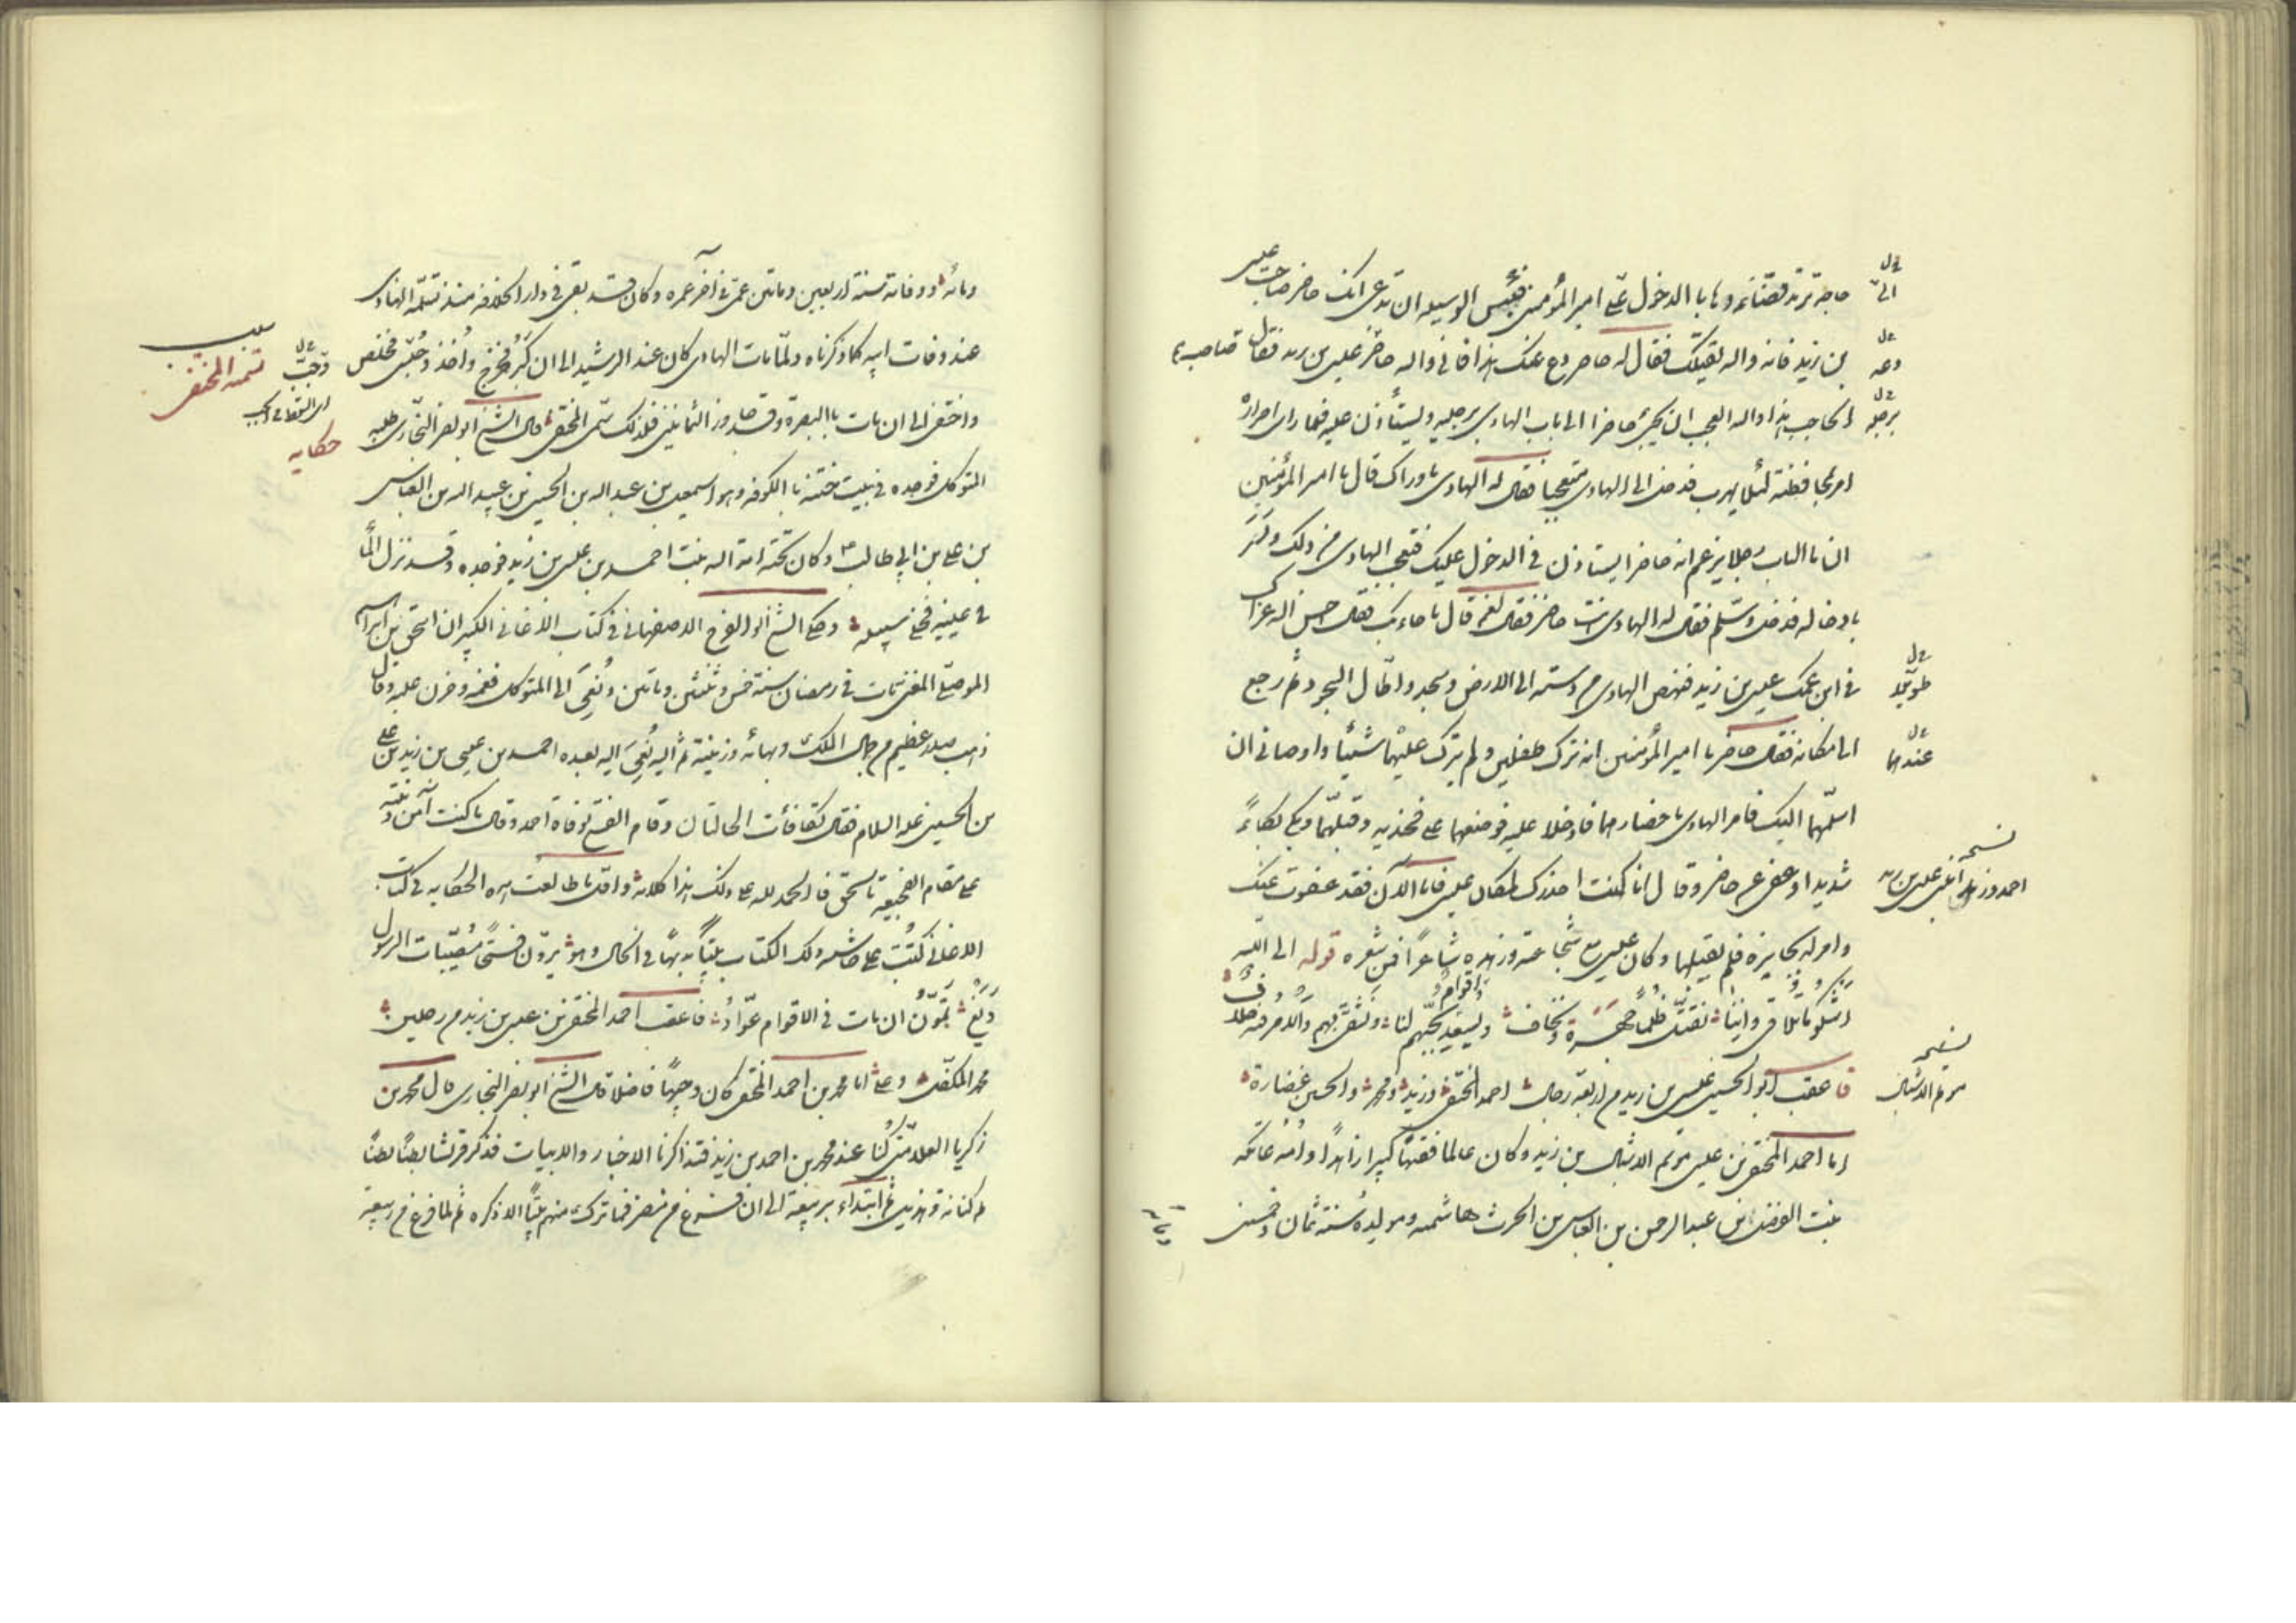 حاجة تريد قضائها وبابا الدخول على امير المؤمنين فبئس الوسيله ان تدعى انك حاضر صاحب عيسى
بن زيد فانه والله يقتلك فقال له حاضر دع عنك هذا فانى والله حاضر عيسى بن زيد فقال
الحاجب هذا والله العجب ان يجيئ حاضرا الى باب الهادى برجليه ويستأذن عليه فلما راى اصراره
امر بمحافظته لئلا يهرب فدخل الى الهادى متعجبا فقال له الهادى ما وراك قال يا امير المؤمنين
ان بالباب رجلا يزعم انه حاضرا يستاذن فى الدخول عليك فتعجب الهادى من ذلك وامر
بادخاله فدخل وسلم فقال له الهادى انت حاضر فقال نعم قال ما جاء بك فقال احسن الله عزاك
فى ابن عمك عيسى بن زيد فنهض الهادى من دسته الى الارض وسجد واطال السجود ثم رجع
الى مكانه فقال حاضر يا امير المؤمنين انه ترك طفلين ولم يترك عليهما شيئا واوصانى ان
اسلمهما اليك فامر الهادى باحضارهما فادخلا عليه فوضعهما على فخذيه وقبلهما وبكى بكاءً
شديدا وعفى عن حاضر وقال انا كنت احذرك لمكان عيسى فاما الآن فقد عفوت عنك
وامر له بجايزة فلم يقبلها وكان عيسى مع شجاعته وزهده شاعراً فمن شعره قوله الى الله
اشكو ما نلاقى واننا نقتل ظلماً جهرة ونخاف ويسعد اقوام بحبهم لنا ونشقى بهم والامر فيه خلاف
فاعقب ابو الحسين عيسى بن زيد من اربعة رجال احمد المختفى وزيد ومحمد والحسين غضارة
اما احمد المختفى بن عيسى موتم الاشبال بن زيد وكان عالما فقيهاً كبيرا زاهداً وامه عاتكه
بنت الفضل بن عبد الرحمن بن العباس بن الحرث هاشميه ومولده سنة ثمان وخمسين
الىّ
دعه
برجليه
طويلا
عندهما
نسخه
احمد وزيد ابنى عيسى بن زيد
نسخه
موتم الاشبال
ومائه ووفاته سنة اربعين وماتين عمى فى آخر عمره وكان قد بقى فى دار الخلافه منذ تسلمه الهادى
عند وفات ابيه كما ذكرناه ولما مات الهادى كان عند الرشيد الى ان كبر وخرج واُخذ وحبس فخلص
واختفى الى ان مات بالبصرة وقد جاوز الثمانين فلذلك سمى المختفى قال الشيخ ابو نصر البخارى طلبه
المتوكل فوجده فى بيت ختنه بالكوفه وهو اسمعيل بن عبد الله بن الحسين بن عبيد الله بن العباس
بن على بن ابى طالب وكان تحته امة الله بنت احمد بن عيسى بن زيد فوجده وقد نزل الما
فى عينيه فخلى سبيله وحكى الشيخ ابو الفرج الاصفهانى فى كتاب الاغانى الكبير ان اسحق بن ابراهيم
الموصلى المغنى مات فى رمضان سنة خمس وثلثين وماتين ونُعِىَ الى المتوكل فغمه وحزن عليه وقال
ذهب صدر عظيم من جمال الملك وبهائه وزينته ثم نُعِىَ اليه بعده احمد بن عيسى بن زيد بن على
بن الحسين عليه السلام فقال تكافأت الحالتان وقام الفتح بوفاة احمد وقال ما كنت آمن وثبته
على مقام الفجيعة باسحق فالحمد لله على ذلك هذا كلامه واقول ما طالعت هذه الحكايه فى كتاب
الاغانى كتبت على حاشيه ذلك الكتاب بيتاً بديهاً فى الحال وهو يرون فتحاً مصيبات الرسول
ان مات فى الاقوام عوّاد فاعقب احمد المختفى بن عيسى بن زيد من رجلين
محمد المكفل وعلى اما محمد بن احمد المختفى كان وجيهاً فاضلا قال الشيخ ابو نصر البخارى قال محمد بن
زكريا الغلابى كُنا عند محمد بن احمد بن زيد فتذاكرنا الاخبار والابيات فذكر قريشا بطناً بطناً
ثم كنانه وهذيل ثم ابتداء بربيعة الى ان فرغ من مضر فما ترك منهم بيتاً الا ذكره ثم لما فرغ من ربيعة
تتمه المختفى
حكايه